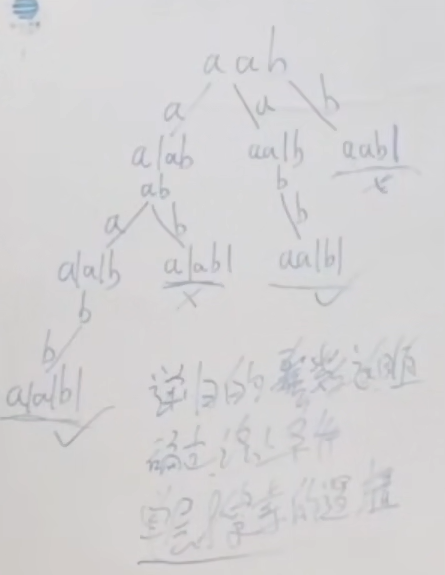 aab
a a b
a|ab aa|b aab|
ab b
a b b
a|a|b a|ab| aa|b|
b
b
a|a|b|
递归的参数返回值
确定终止条件
单层搜索的逻辑